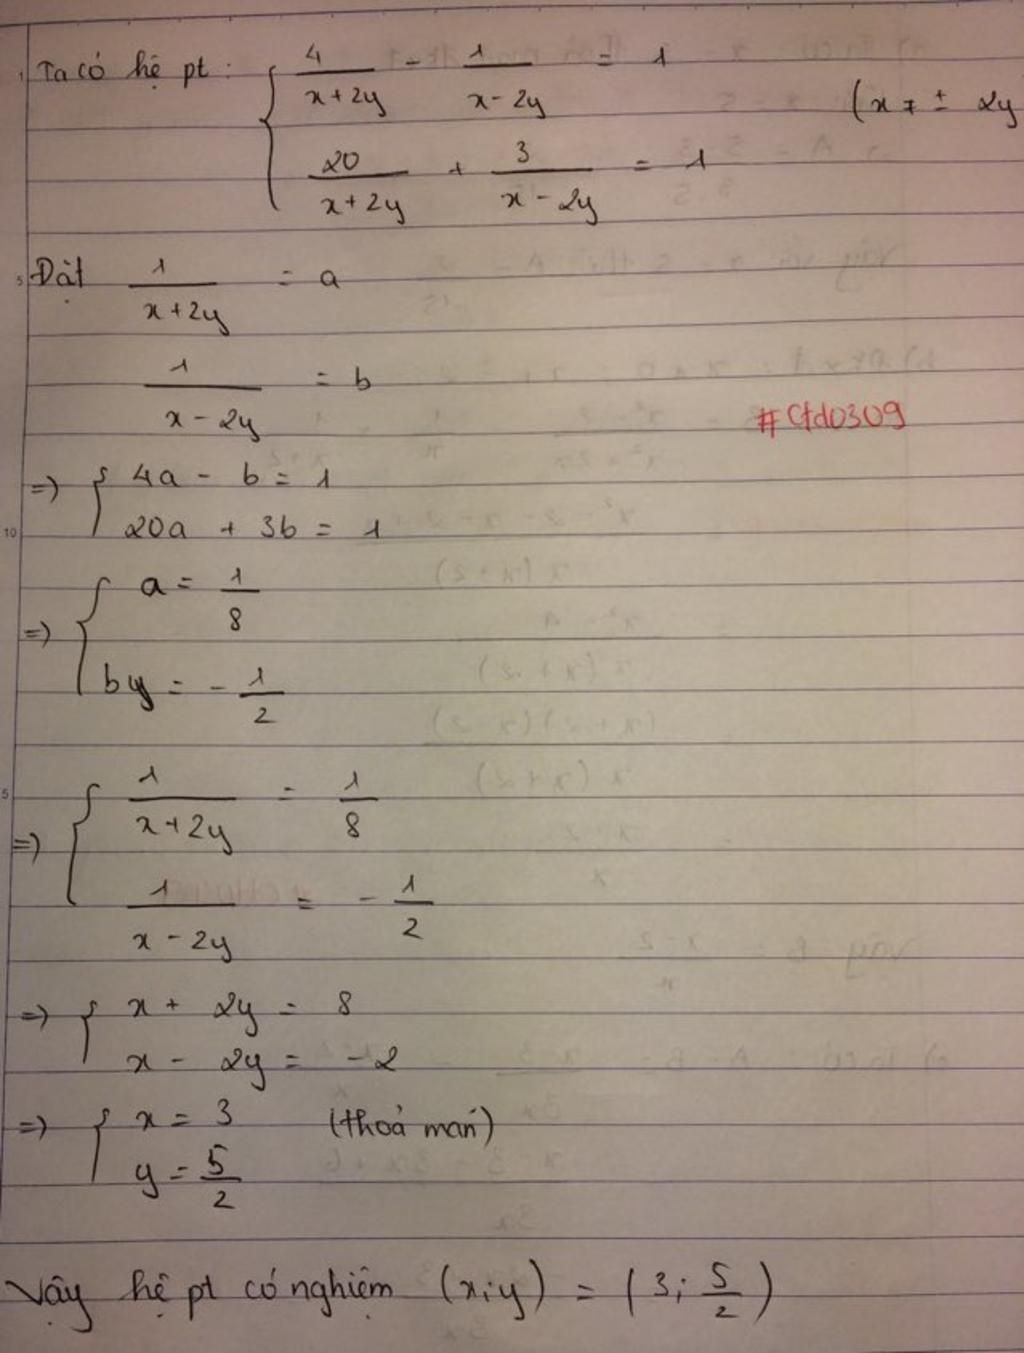 Ta có hệ pt: { 4/(x+2y) - 1/(x-2y) = 1
(x ≠ ± 2y
20/(x+2y) + 3/(x-2y) = 1
Đặt 1/(x+2y) = a
1/(x-2y) = b
#Ctd0309
=> { 4a - b = 1
20a + 3b = 1
=> { a = 1/8
by = - 1/2
=> { 1/(x+2y) = 1/8
1/(x-2y) = - 1/2
=> { x + 2y = 8
x - 2y = -2
=> { x = 3 (thoả mãn)
y = 5/2
Vậy hệ pt có nghiệm (x;y) = (3; 5/2)